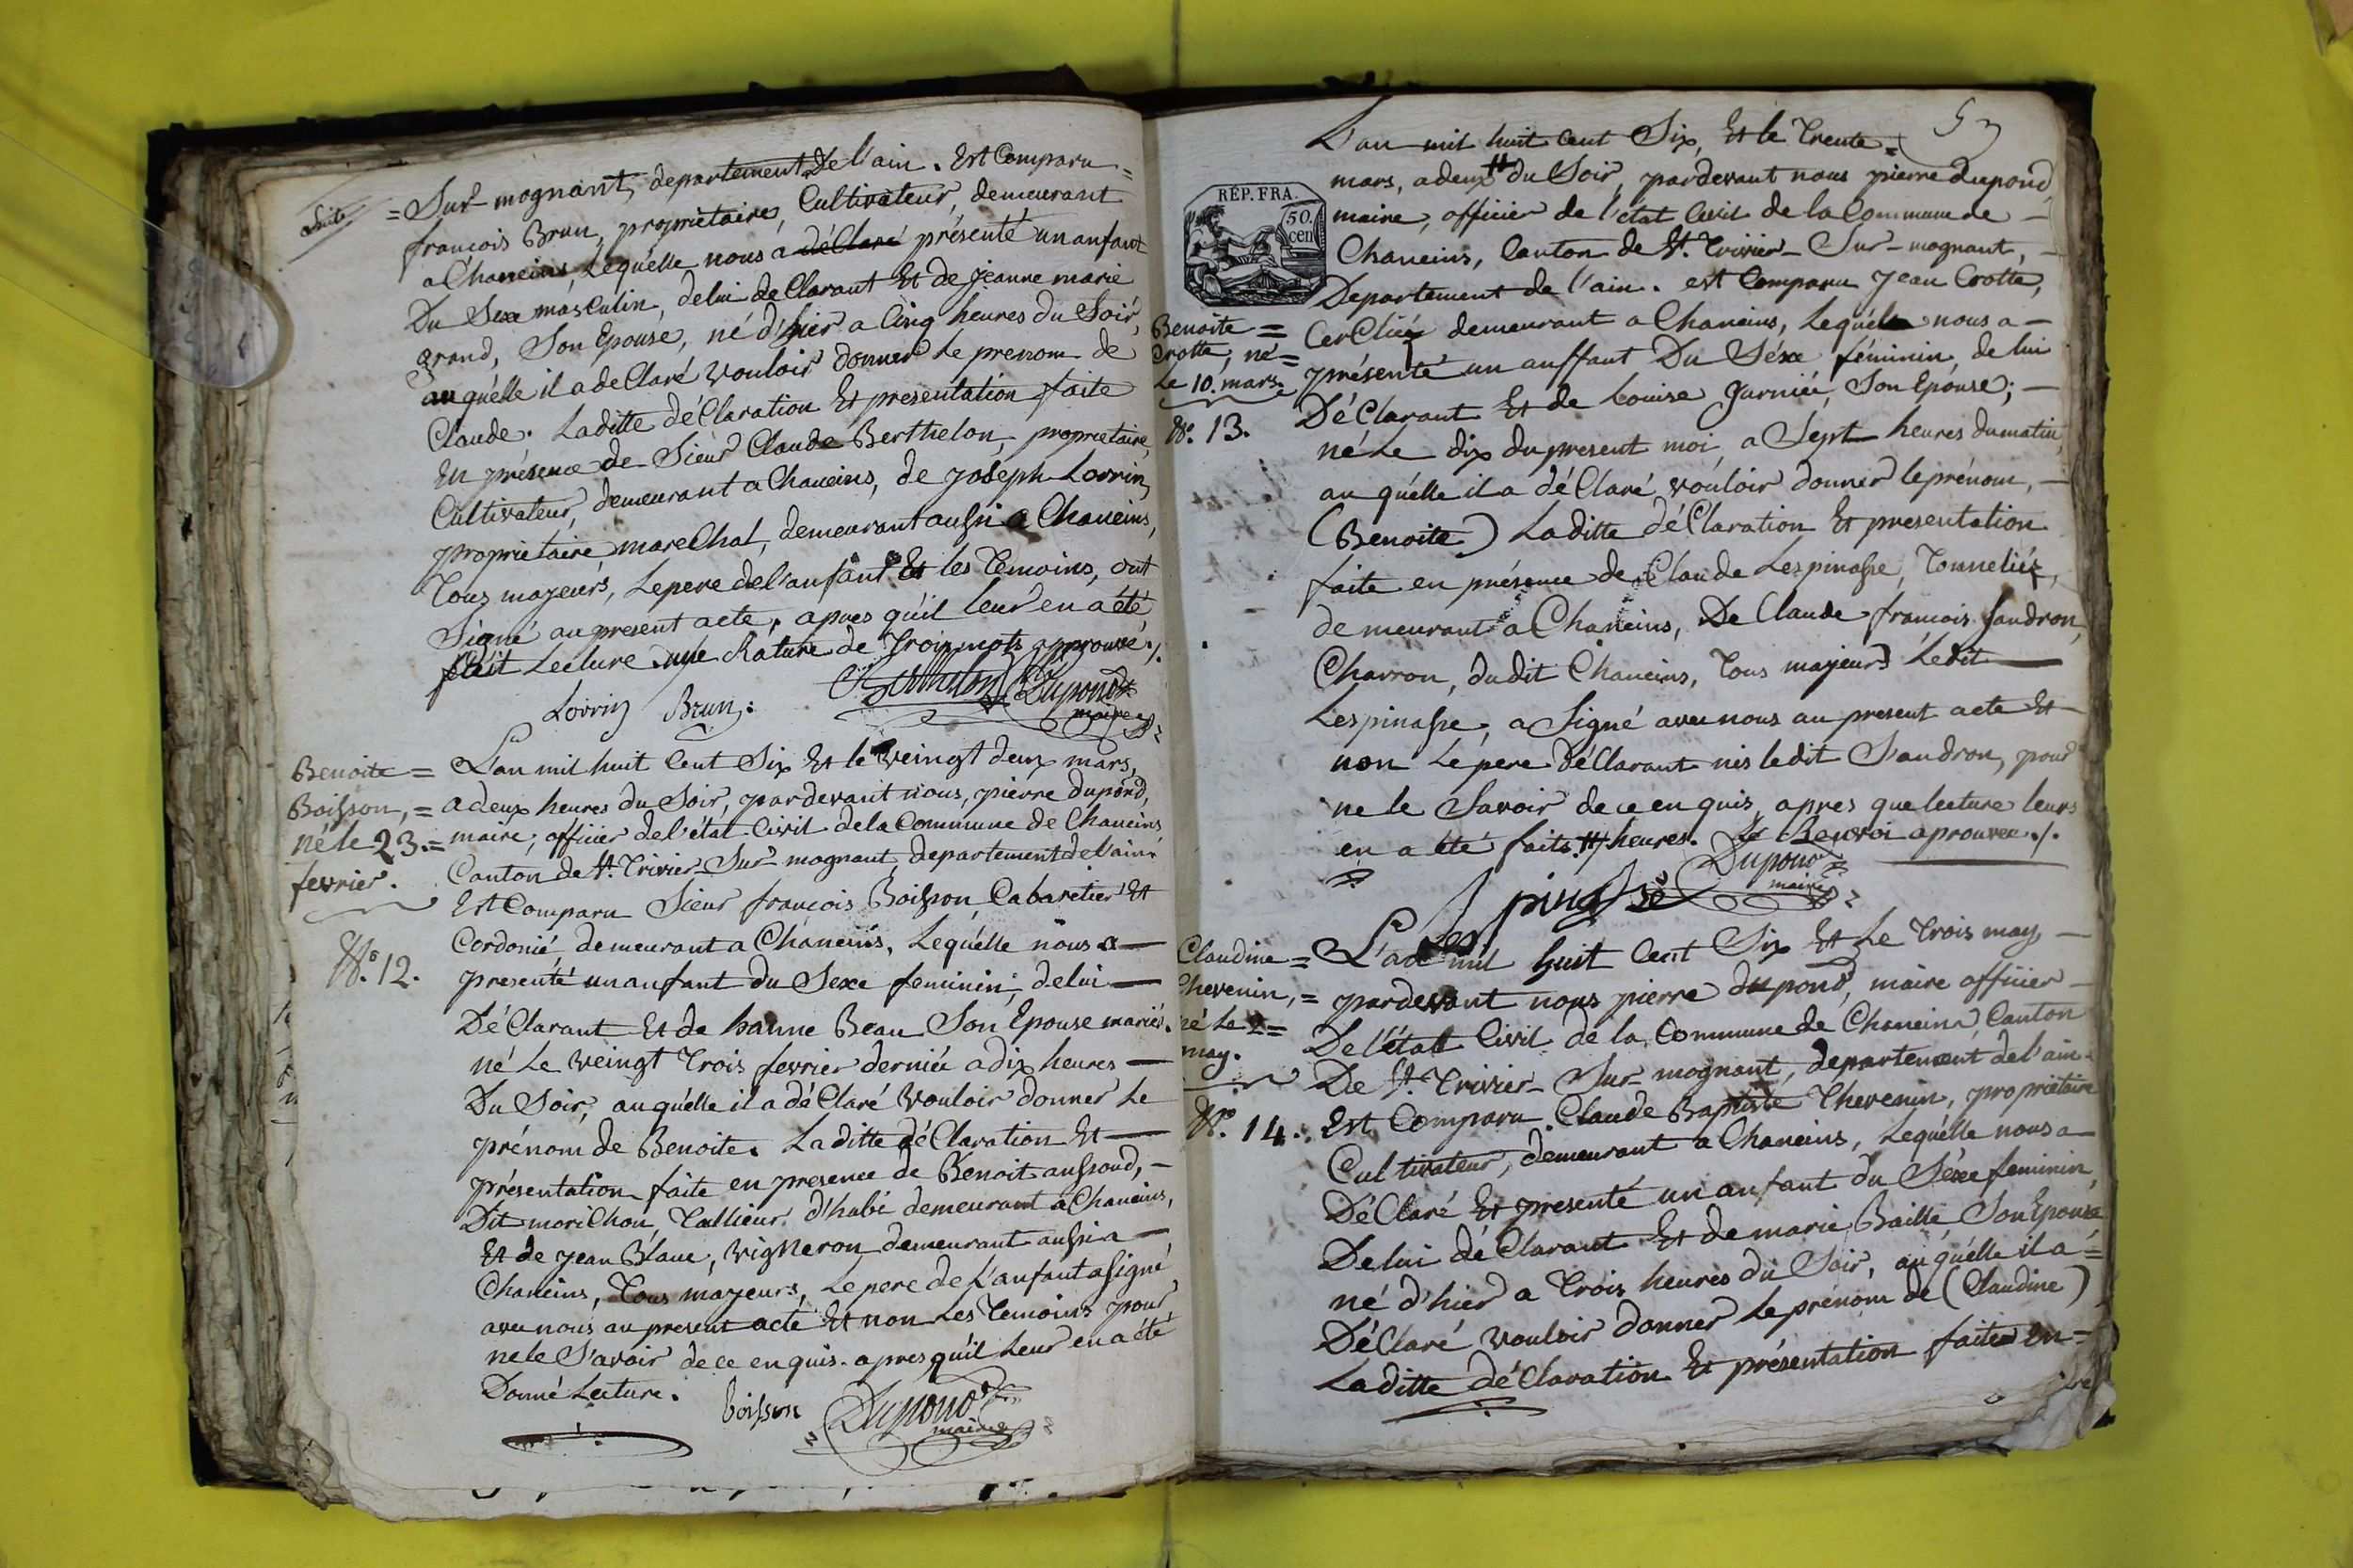 Suite
= Sur-mognant, departement De l'ain. Est Comparu =
françois Brun, propriétaire, Cultivateur, demeurant
a Chaneins, Lequélle nous a déClaré présenté un anfant
Du Sexe masculin, de lui deClarant Et de jeanne marie
grand, Son Epouse, né d'hier a Cinq heures du Soir,
au quélle il a deClaré vouloir donner Le prenom de
Claude. Laditte déClaration Et presentation faite
En présence de Sieur Claude Berthelon, proprietaire,
Cultivateur, demeurant a Chaneins, de joséph Lorrin,
propriétaire, mareChal, demeurant aussi a Chaneins,
Tous majeurs, Le pere de l'anfant Et les Temoins, ont
Signé au present acte, apres qu'il leur en a été
fait Lecture une Rature de Trois mots approuvé ./.
Lorrin Brun. Berthelon Dupond
maire
Benoite =
Boisson, =
né le 23. =
fevrier.
N.o 12.
L'an mil huit Cent Six Et le veingt deux mars,
a deux heures du Soir, par devant nous, pierre dupond,
maire, officier de l'état Civil de la Commune de Chaneins
Canton de St. Trivier-Sur-mognant, departement de l'ain.
Est Comparu Sieur françois Boisson, Cabaretier Et
Cordonié, demeurant a Chaneins, Lequélle nous a —
presenté un anfant du Sexe feminin, de lui —
DéClarant Et de hanne Beau Son Epouse mariés.
né Le veingt Trois fevrier dernié a dix heures —
Du Soir, au quélle il a déClaré vouloir donner Le
prénom de Benoite. La ditte déClaration Et —
présentation faite en presence de Benoit aussoud, —
Dit moriChon, Tallieur d'habi demeurant a Chaneins,
Et de jean Blanc, vigneron demeurant aussi a —
Chaneins, Tous majeurs, Le pere de L'anfant a signé
avec nous au present acte Et non Les Temoins pour,
ne le S'avoir de ce enquis. apres qu'il Leur en a été
Donné Lecture.
boisson Dupond
maire
5
RÉP. FRA.
50.
cen
Benoite =
Crotte, né =
Le 10. mars.
N.o 13.
L'an mil huit Cent Six, Et le Trente =
mars, a deux # du Soir, par devant nous pierre dupond
maire, officier de l'état Civil de la Commune de —
Chaneins, Canton de St. Trivier-Sur-mognant, —
Departement de l'ain. est Comparu jean Crotte,
CerClié demeurant a Chaneins, Lequél nous a —
présenté un anffant Du Séxe féminin, de lui
DéClarant Et de Louise garnié, Son Epouse; —
né Le dix du present moi, a Sept heures du matin,
au quélle il a déClaré vouloir donner le prénom, —
(Benoite) La ditte déClaration Et presentation
faite en présence de Claude Lespinasse, Tonnelié,
demeurant a Chaneins, De Claude françois Sandron,
Charron, dudit Chaneins, Tous majeurs Ledit —
Lespinasse, a Signé avec nous au present acte Et
non Le pere déClarant nis ledit Sandron, pour
ne le Savoir de ce enquis, apres que lecture leurs
en a été faits. # heures. Le Renvoi aprouvee ./.
Lespinasse Dupond
maire
Claudine =
Thevenin, =
né Le 2 =
may.
N.o 14.
L'an mil huit Cent Six Et Le Trois may —
par devant nous pierre dupond, maire officier —
De l'état Civil de la Commune de Chaneins, Canton
De St. Trivier-Sur-mognant, departement de l'ain.
Est Comparu Claude Baptiste Thevenin, propriétaire
Cultivateur, demeurant a Chaneins, Lequélle nous a
DéClaré Et presenté un anfant du Séxe feminin,
De lui déClarant Et de marie Baillé Son Epouse
né d'hier a Trois heures du Soir, au quélle il a =
DéClaré vouloir donner Le prénom de (Claudine)
La ditte déClaration Et présentation faite en =